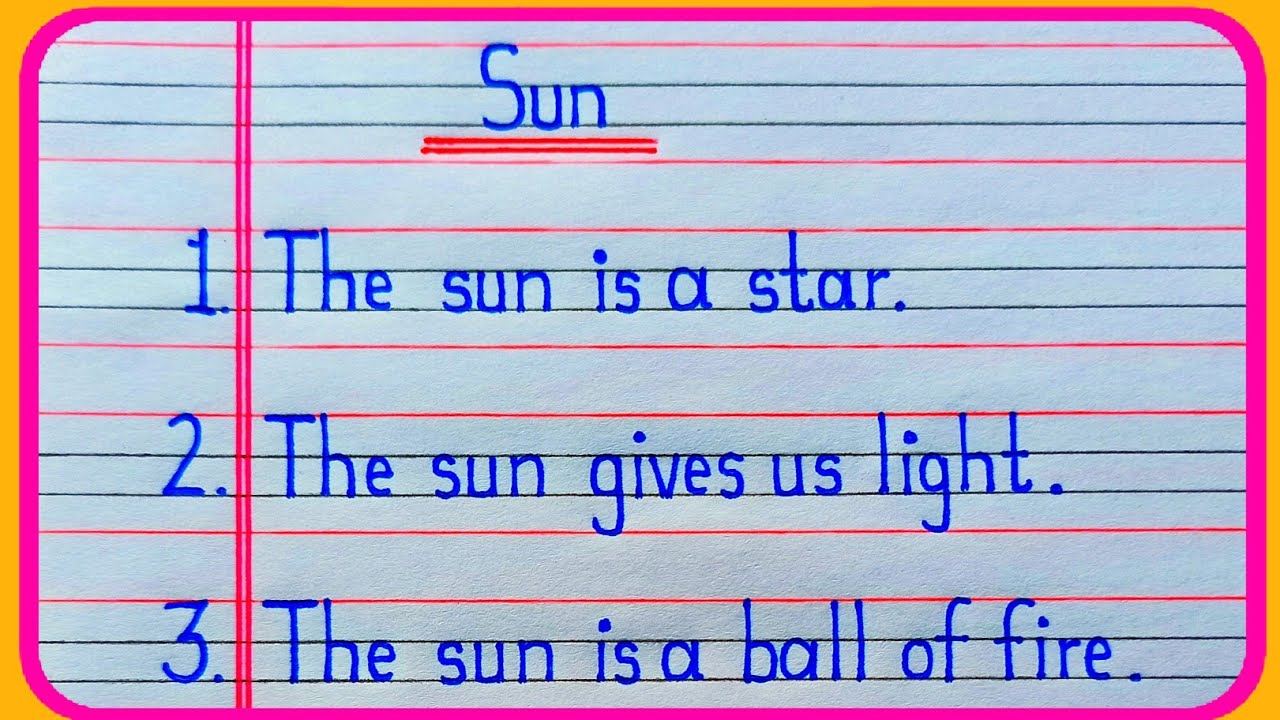 Sun
1. The sun is a star.
2. The sun gives us light.
3. The sun is a ball of fire.